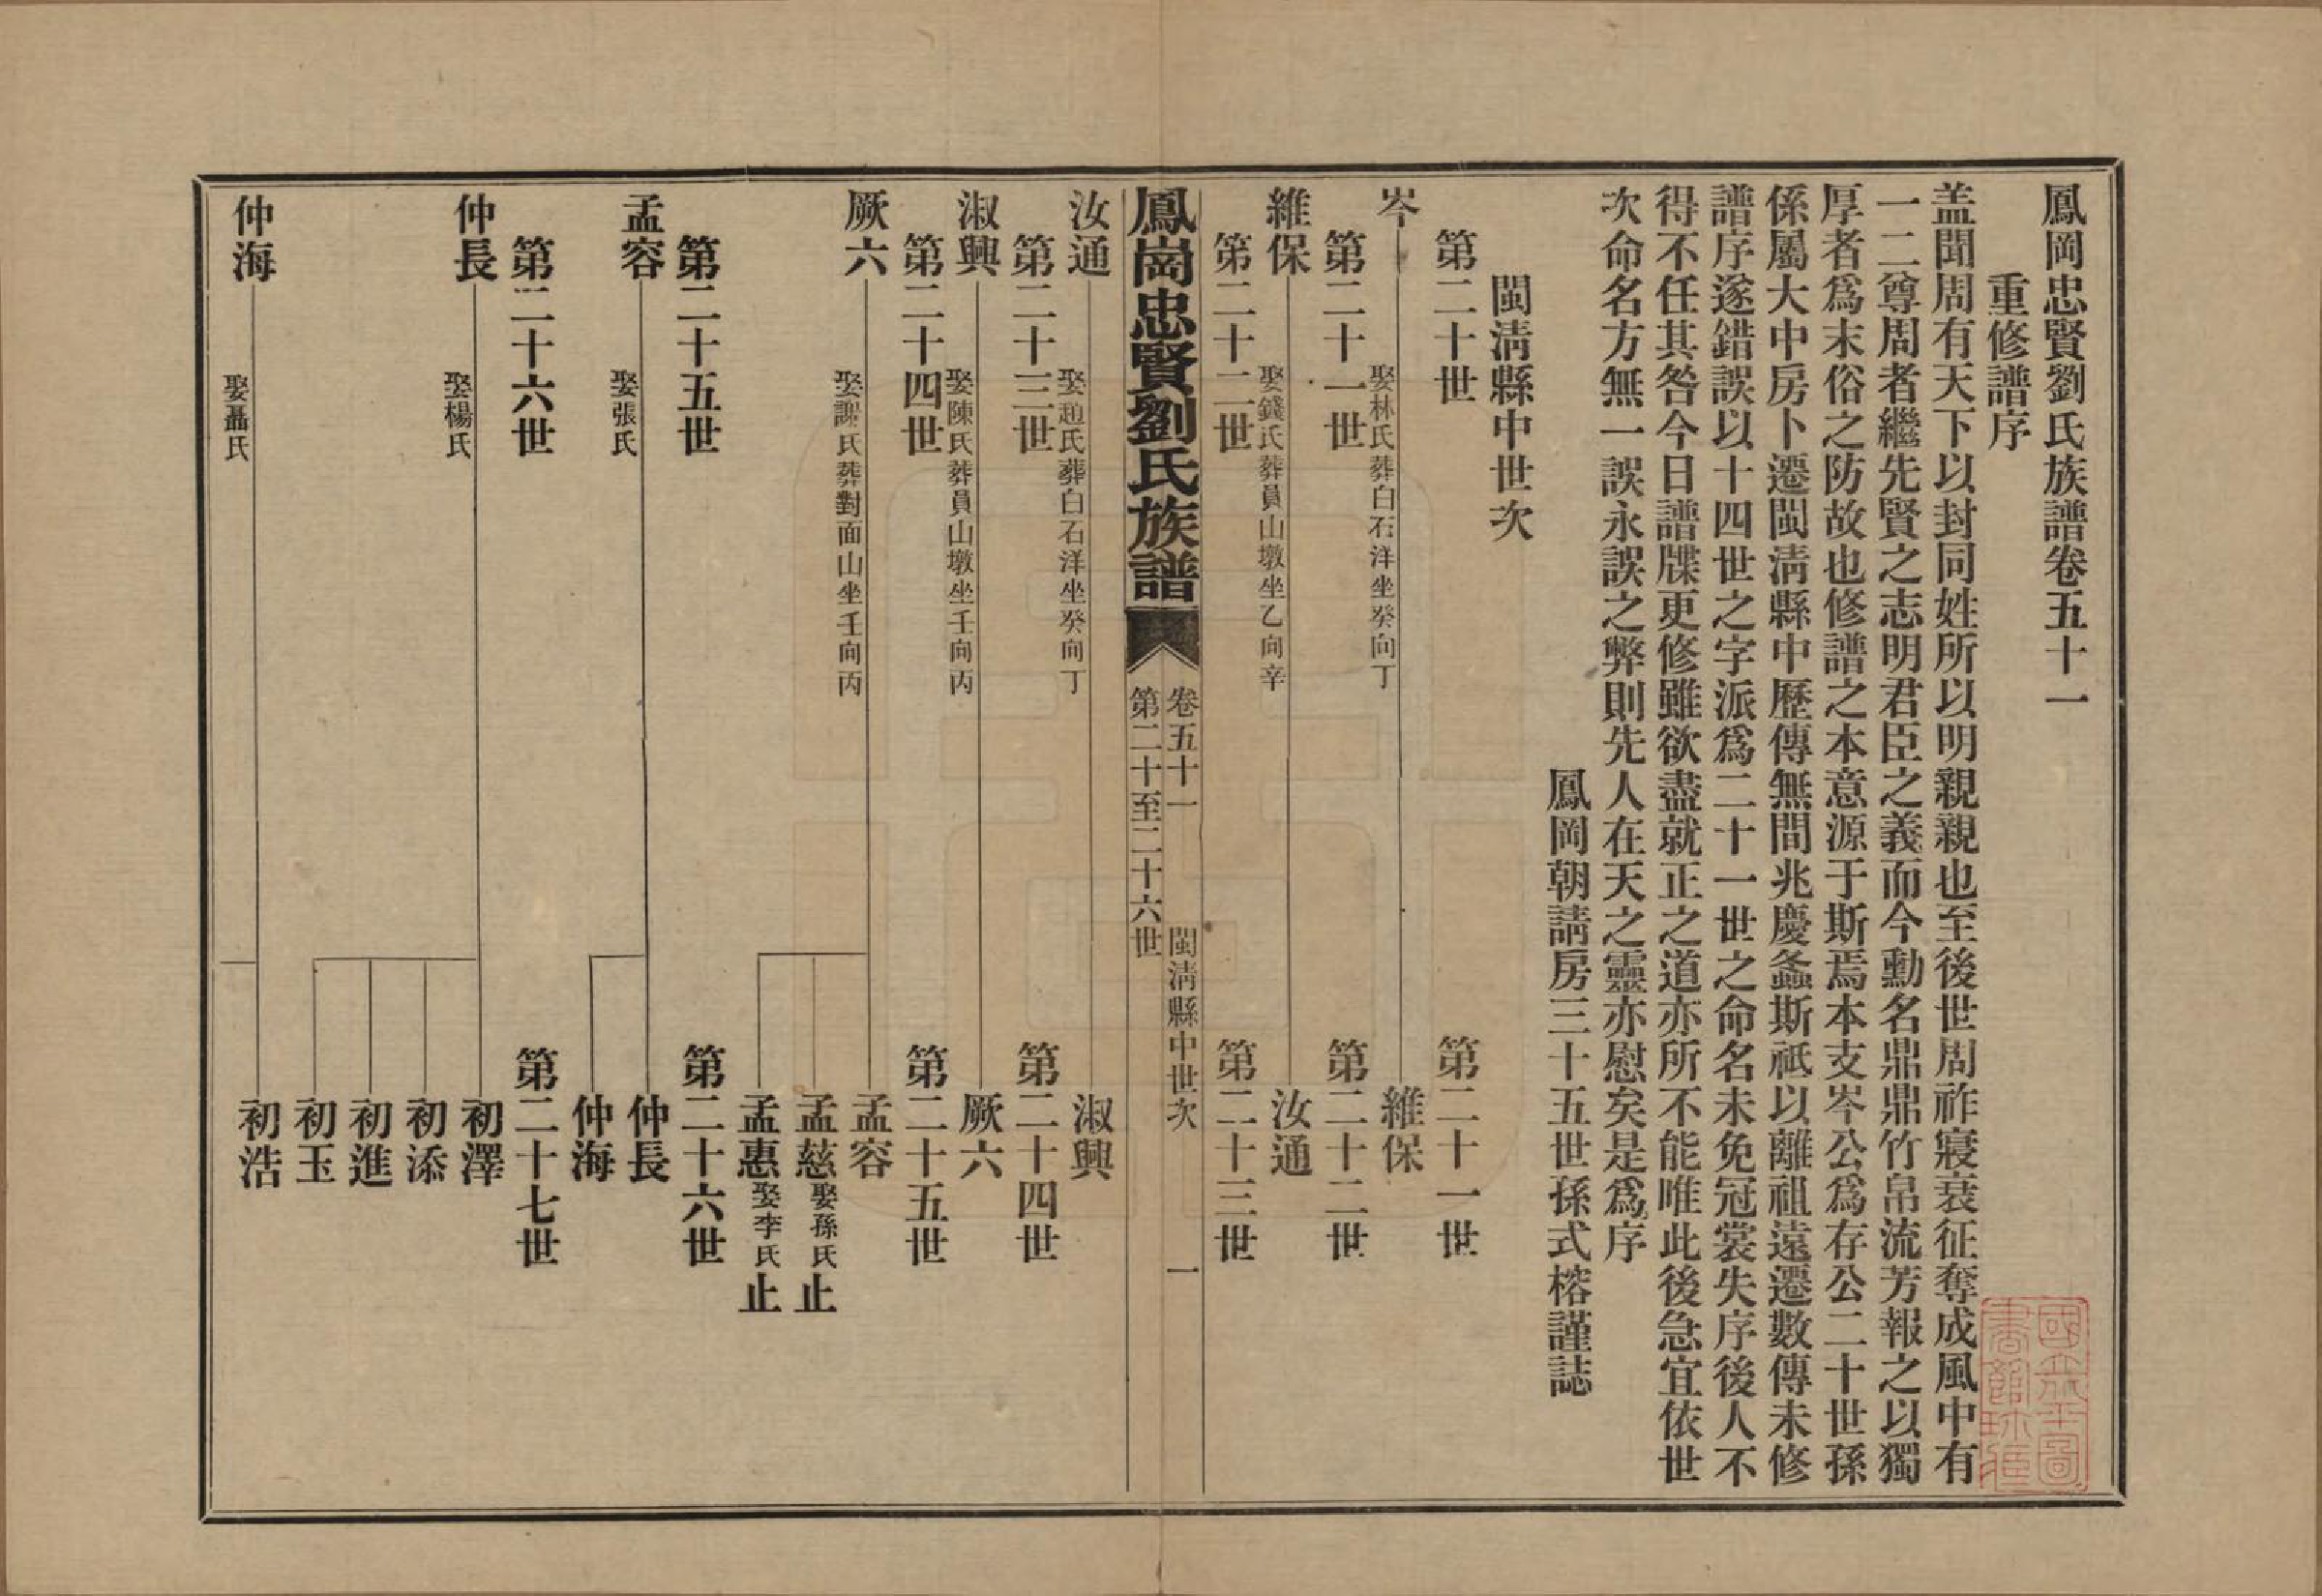 鳳岡忠賢劉氏族譜卷五十一
重修譜序
盖聞周有天下以封同姓所以明親親也至後世周祚寢衰征奪成風中有
一二尊周者繼先賢之志明君臣之義而今勳名鼎鼎竹帛流芳報之以獨
厚者爲末俗之防故也修譜之本意源于斯焉本支岑公爲存公二十世孫
係屬大中房卜遷閩清縣中歷傳無間兆慶螽斯祇以離祖遠遷數傳未修
譜序遂錯誤以十四世之字派爲二十一世之命名未免冠裳失序後人不
得不任其咎今日譜牒更修雖欲盡就正之道亦所不能唯此後急宜依世
次命名方無一誤永誤之弊則先人在天之靈亦慰矣是爲序
鳳岡朝請房三十五世孫式榕謹誌
閩清縣中世次
第二十世
第二十一世
岑
娶林氏葬白石洋坐癸向丁
維保
第二十一世
第二十二世
維保
娶錢氏葬員山墩坐乙向辛
汝通
第二十二世
第二十三世
鳳崗忠賢劉氏族譜
卷五十一
閩清縣中世次
一
第二十至二十六世
汝通
娶趙氏葬白石洋坐癸向丁
淑興
第二十三世
第二十四世
淑興
娶陳氏葬員山墩坐壬向丙
厥六
第二十四世
第二十五世
厥六
娶謝氏葬對面山坐壬向丙
孟容
孟慈娶孫氏止
孟惠娶李氏止
第二十五世
第二十六世
孟容
娶張氏
仲長
仲海
第二十六世
第二十七世
仲長
娶楊氏
初澤
初添
初進
初玉
仲海
娶聶氏
初浩
國立北平圖
書館珍藏